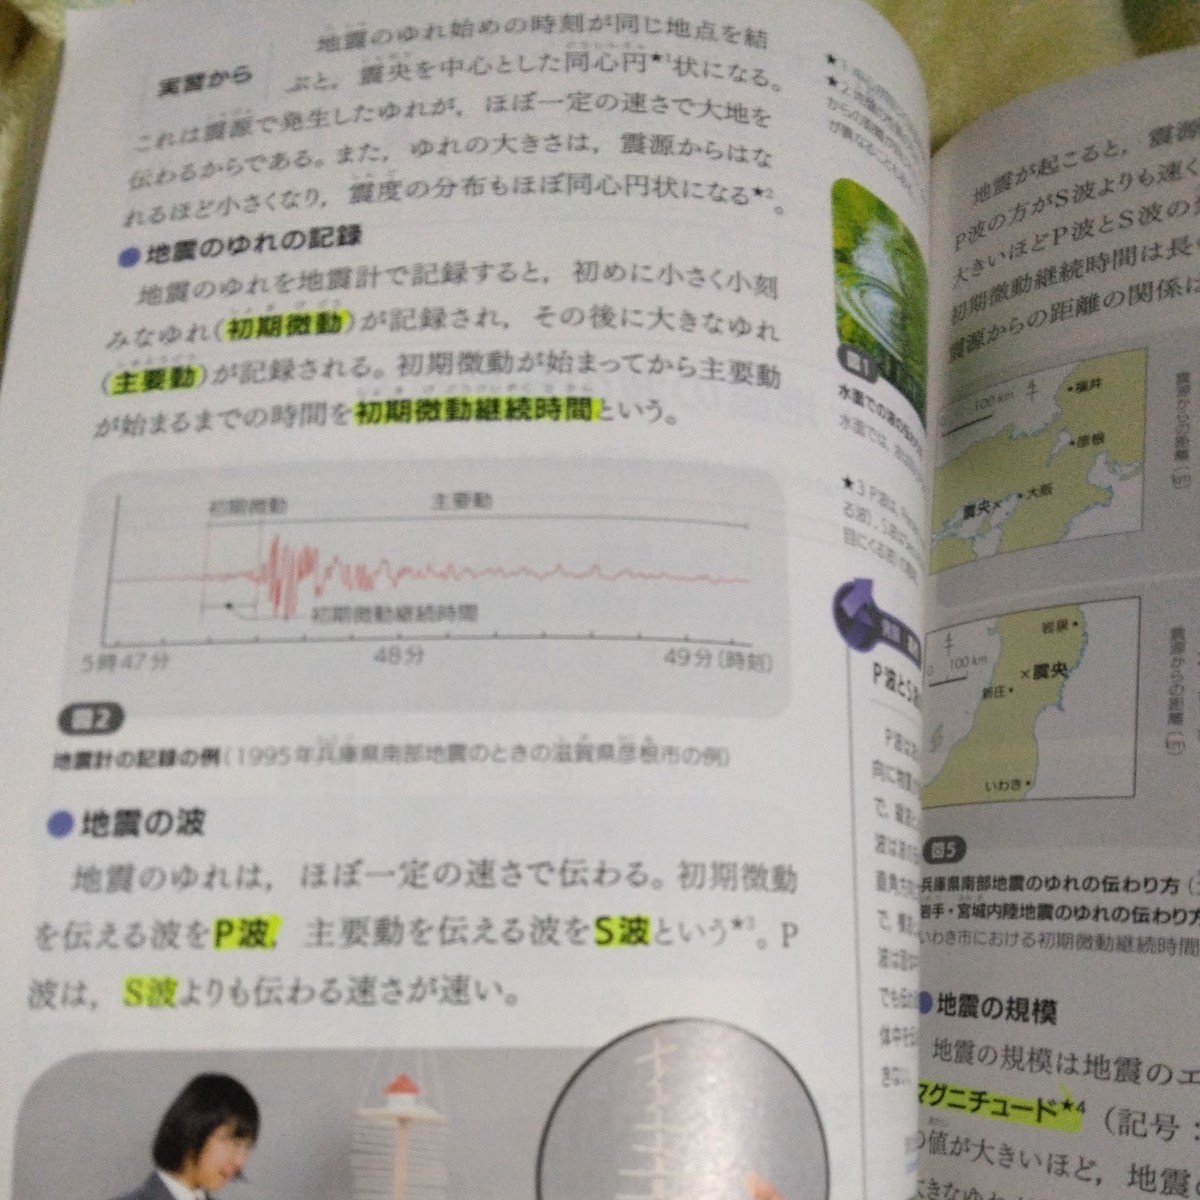 地震のゆれ始めの時刻が同じ地点を結
実習から
ぶと，震央を中心とした同心円★1状になる。
これは震源で発生したゆれが，ほぼ一定の速さで大地を
伝わるからである。また，ゆれの大きさは，震源からはな
れるほど小さくなり，震度の分布もほぼ同心円状になる★2。
●地震のゆれの記録
地震のゆれを地震計で記録すると，初めに小さく小刻
みなゆれ(初期微動)が記録され，その後に大きなゆれ
(主要動)が記録される。初期微動が始まってから主要動
が始まるまでの時間を初期微動継続時間という。
初期微動 主要動
初期微動継続時間
5時47分 48分 49分(時刻)
図2
地震計の記録の例(1995年兵庫県南部地震のときの滋賀県彦根市の例)
●地震の波
地震のゆれは，ほぼ一定の速さで伝わる。初期微動
を伝える波をP波，主要動を伝える波をS波という★3。P
波は，S波よりも伝わる速さが速い。
図1
水面での波の伝わ
水面では，
★3 P波は，
P波とS
地震が起こると，震源
P波の方がS波よりも速く
大きいほどP波とS波の
初期微動継続時間は長
震源からの距離の関係は
100 km
福井
彦根
大阪
震央×
震源からの距離(km)
岩泉
0 100 km
×震央
新庄
いわき
震源からの距離(km)
図5
兵庫県南部地震のゆれの伝わり方(
岩手・宮城内陸地震のゆれの伝わり方
いわき市における初期微動継続時間
●地震の規模
地震の規模は地震のエ
マグニチュード★4 (記号：
の値が大きいほど，地震
大きなゆれ